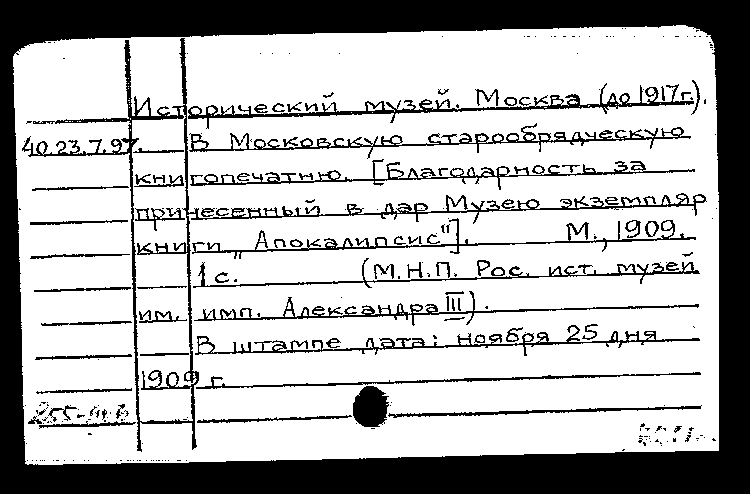 Исторический музей. Москва (до 1917г.).
40.23.7.97. В Московскую старообрядческую
книгопечатню. [Благодарность за
принесенный в дар Музею экземпляр
книги „Апокалипсис"]. М., 1909.
1 с. (М.Н.П. Рос. ист. музей
им. имп. Александра III).
В штампе дата: ноября 25 дня
1909 г.